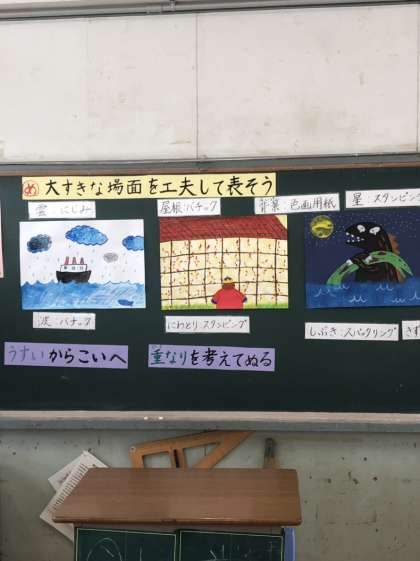 め 大すきな場面を工夫して表そう
雲:にじみ
屋根:バチック
部葉:色画用紙
星:スタンピング
波:バチック
にわとり スタンピング
しぶき:スパッタリング
きず
うすいからこいへ
重なりを考えてぬる